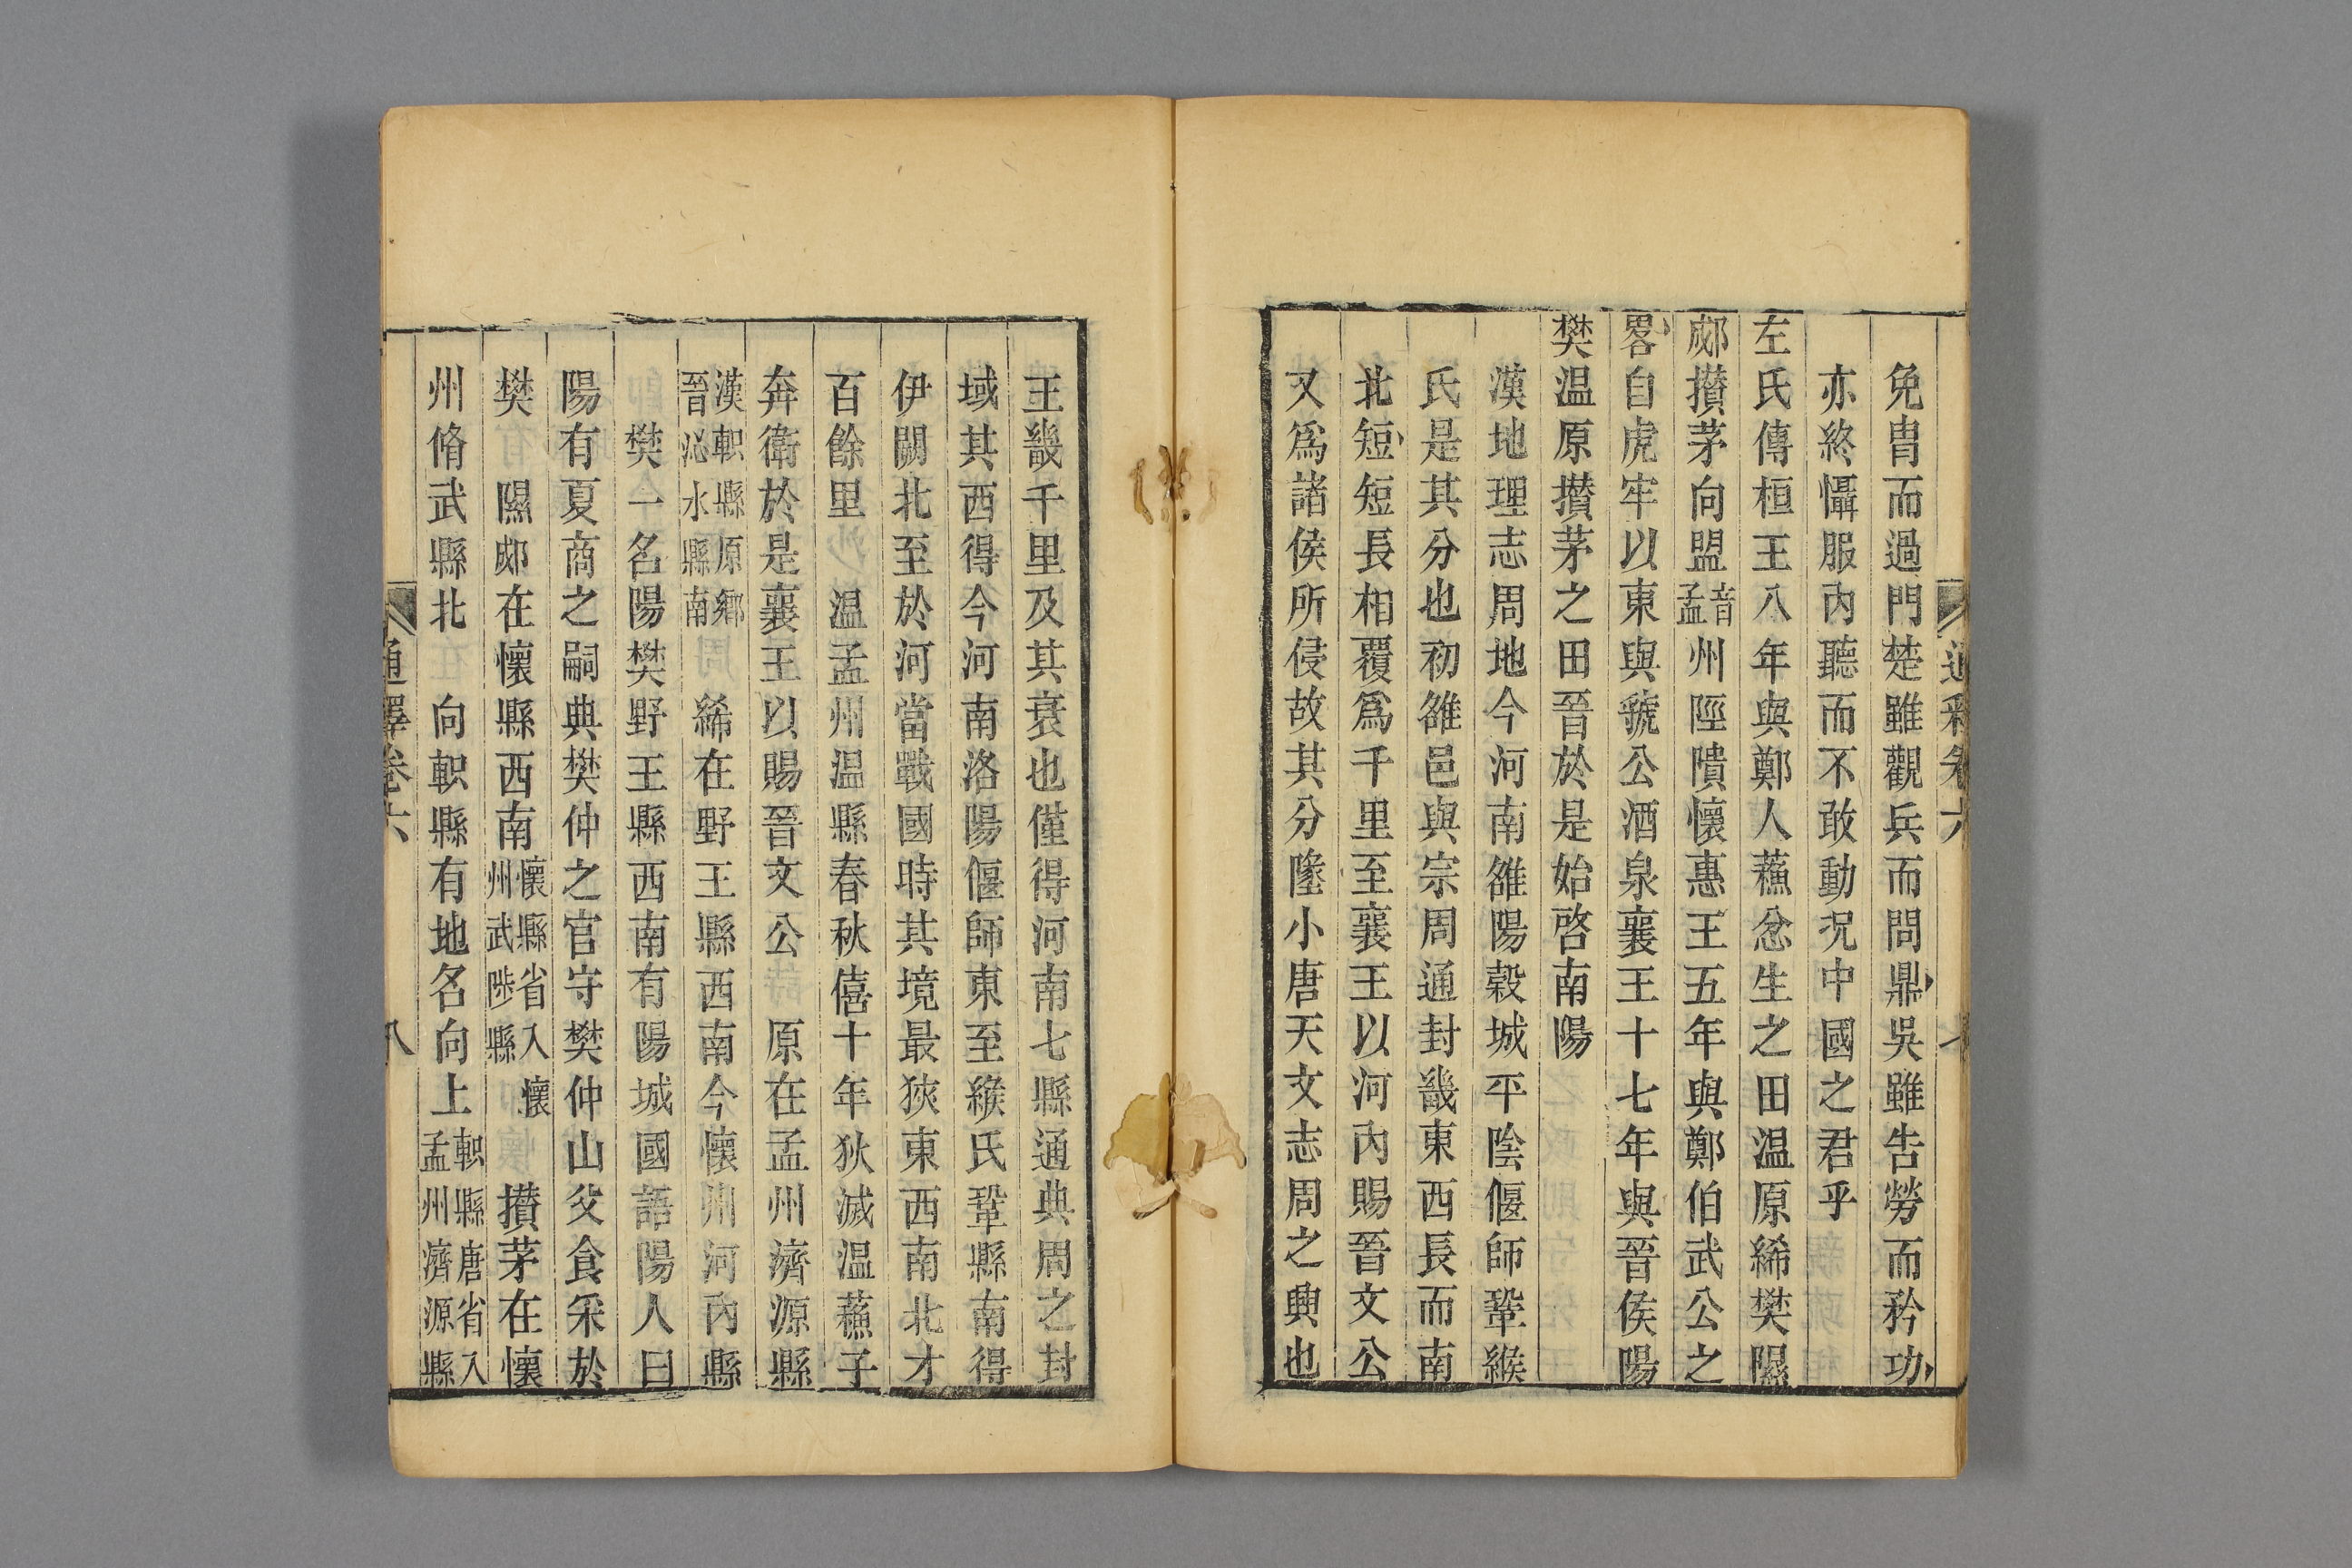 通釋卷六
七
免冑而過門楚雖觀兵而問鼎吳雖告勞而矜功
亦終懾服内聽而不敢動況中國之君乎
左氏傳桓王八年與鄭人蘇忿生之田温原絺樊隰
郕攅茅向盟音孟州陘隤懷惠王五年與鄭伯武公之
畧自虎牢以東與虢公酒泉襄王十七年與晉侯陽
樊温原攅茅之田晉於是始啓南陽
漢地理志周地今河南雒陽穀城平陰偃師鞏緱
氏是其分也初雒邑與宗周通封畿東西長而南
北短短長相覆爲千里至襄王以河内賜晉文公
又爲諸侯所侵故其分墬小唐天文志周之興也
王畿千里及其衰也僅得河南七縣通典周之封
域其西得今河南洛陽偃師東至緱氏鞏縣南得
伊闕北至於河當戰國時其境最狹東西南北才
百餘里　温孟州温縣春秋僖十年狄滅温蘇子
奔衛於是襄王以賜晉文公　原在孟州濟源縣
漢軹縣原鄉晉沁水縣南　絺在野王縣西南今懷州河内縣
樊一名陽樊野王縣西南有陽城國語陽人曰
陽有夏商之嗣典樊仲之官守樊仲山父食采於
樊　隰郕在懷縣西南懷縣省入懷州武陟縣　攅茅在懷
州脩武縣北　向軹縣有地名向上軹縣唐省入孟州濟源縣
通釋卷六
八